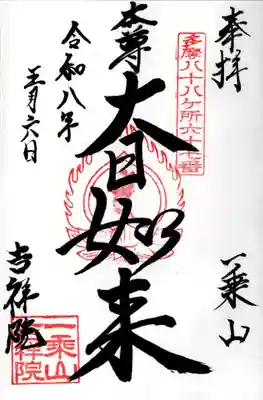 奉拝
多摩八十八ケ所六十七番
一乗山
本尊
大日如来
令和八年
五月六日
吉祥院
一乗山
吉祥院